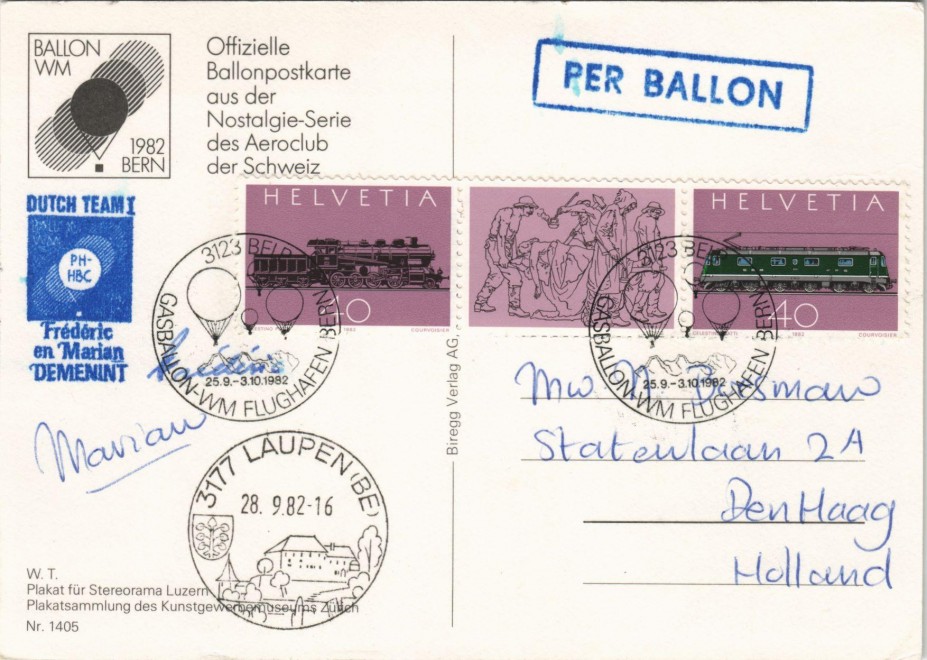 BALLON
WM
1982
BERN
Offizielle
Ballonpostkarte
aus der
Nostalgie-Serie
des Aeroclub
der Schweiz
PER BALLON
DUTCH TEAM I
PH-
HBC
Frédéric
en Marian
DEMENINT
HELVETIA
40
1982
COURVOISIER
HELVETIA
40
1982
COURVOISIER
3123 BELP
GASBALLON-WM FLUGHAFEN BERN
25.9.-3.10.1982
3123 BELP
GASBALLON-WM FLUGHAFEN BERN
25.9.-3.10.1982
Frédéric
Marian
3177 LAUPEN (BE)
28.9.82-16
Biregg Verlag AG,
Mw
Statenlaan 2A
Den Haag
Holland
W. T.
Plakat für Stereorama Luzern
Plakatsammlung des Kunstgewerbemuseums Zürich
Nr. 1405